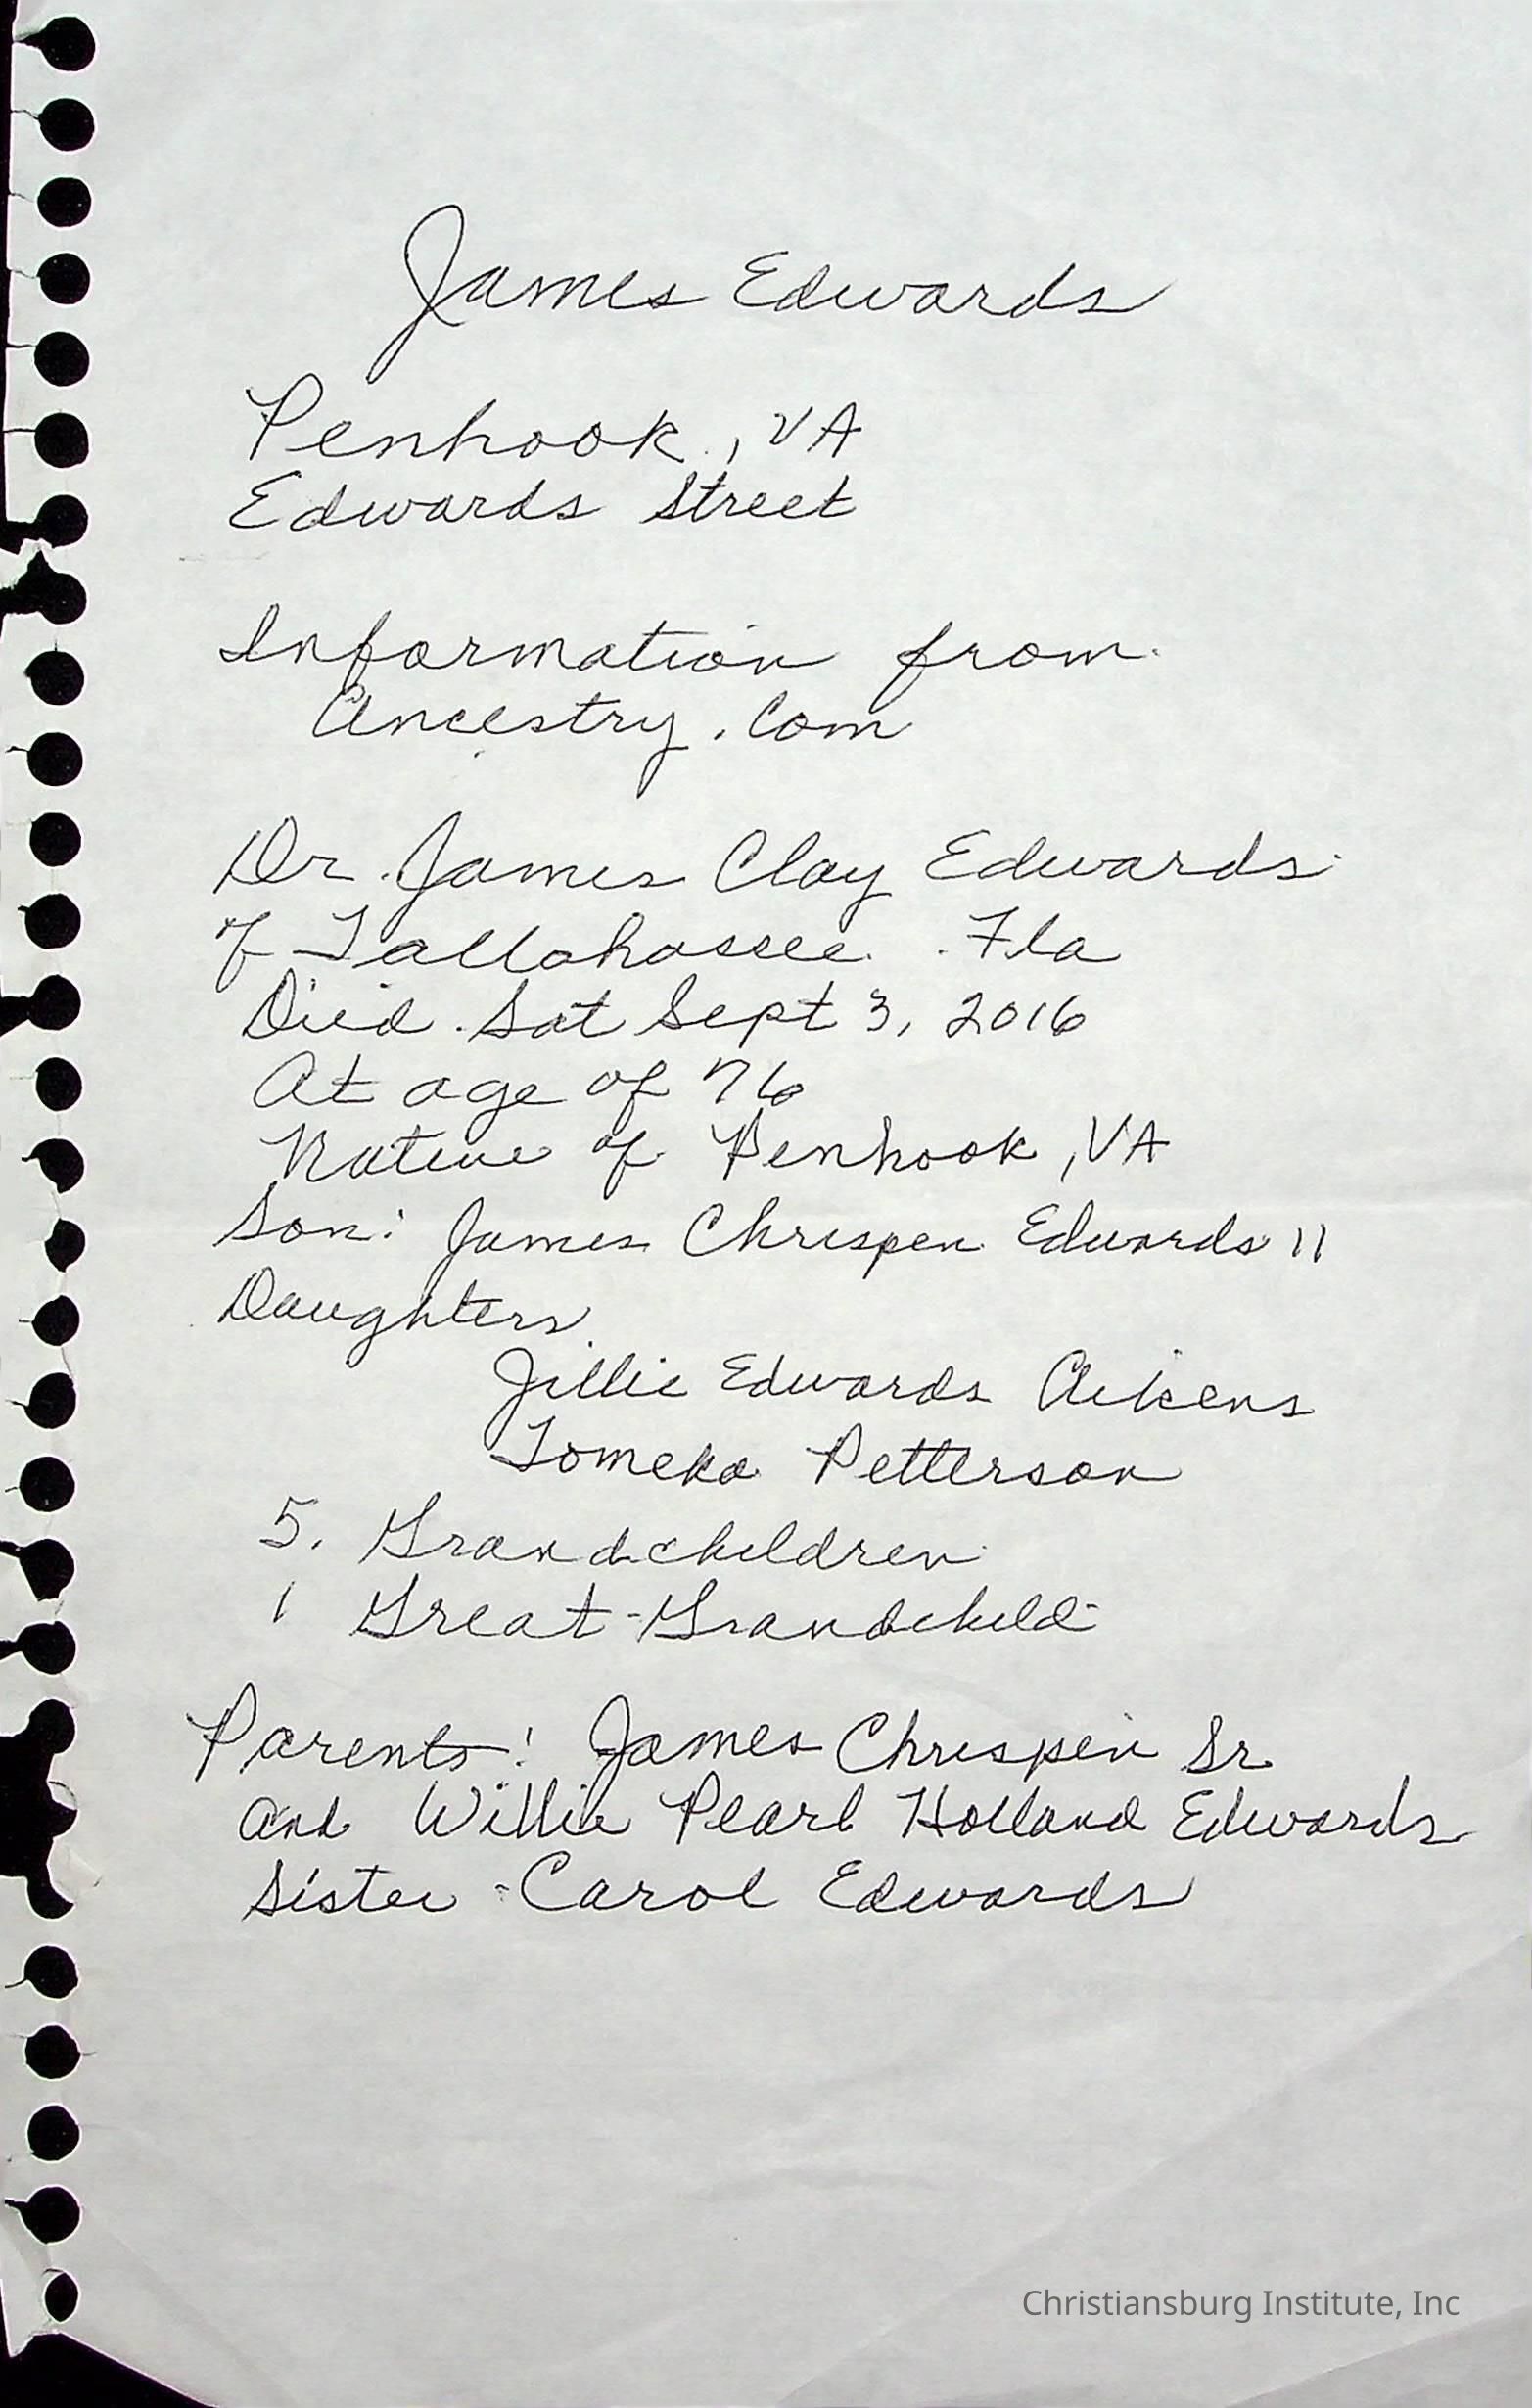 James Edwards
Penhook, VA
Edwards Street
Information from
Ancestry.Com
Dr. James Clay Edwards
of Tallahassee. Fla
Died. Sat Sept 3, 2016
At age of 76
Native of Penhook, VA
Son: James Chrispen Edwards II
Daughters
Jillie Edwards Aikens
Tomeka Petterson
5. Grandchildren
1 Great-Grandchild
Parents: James Chrispin Sr
and Willie Pearl Holland Edwards
Sister - Carol Edwards
Christiansburg Institute, Inc